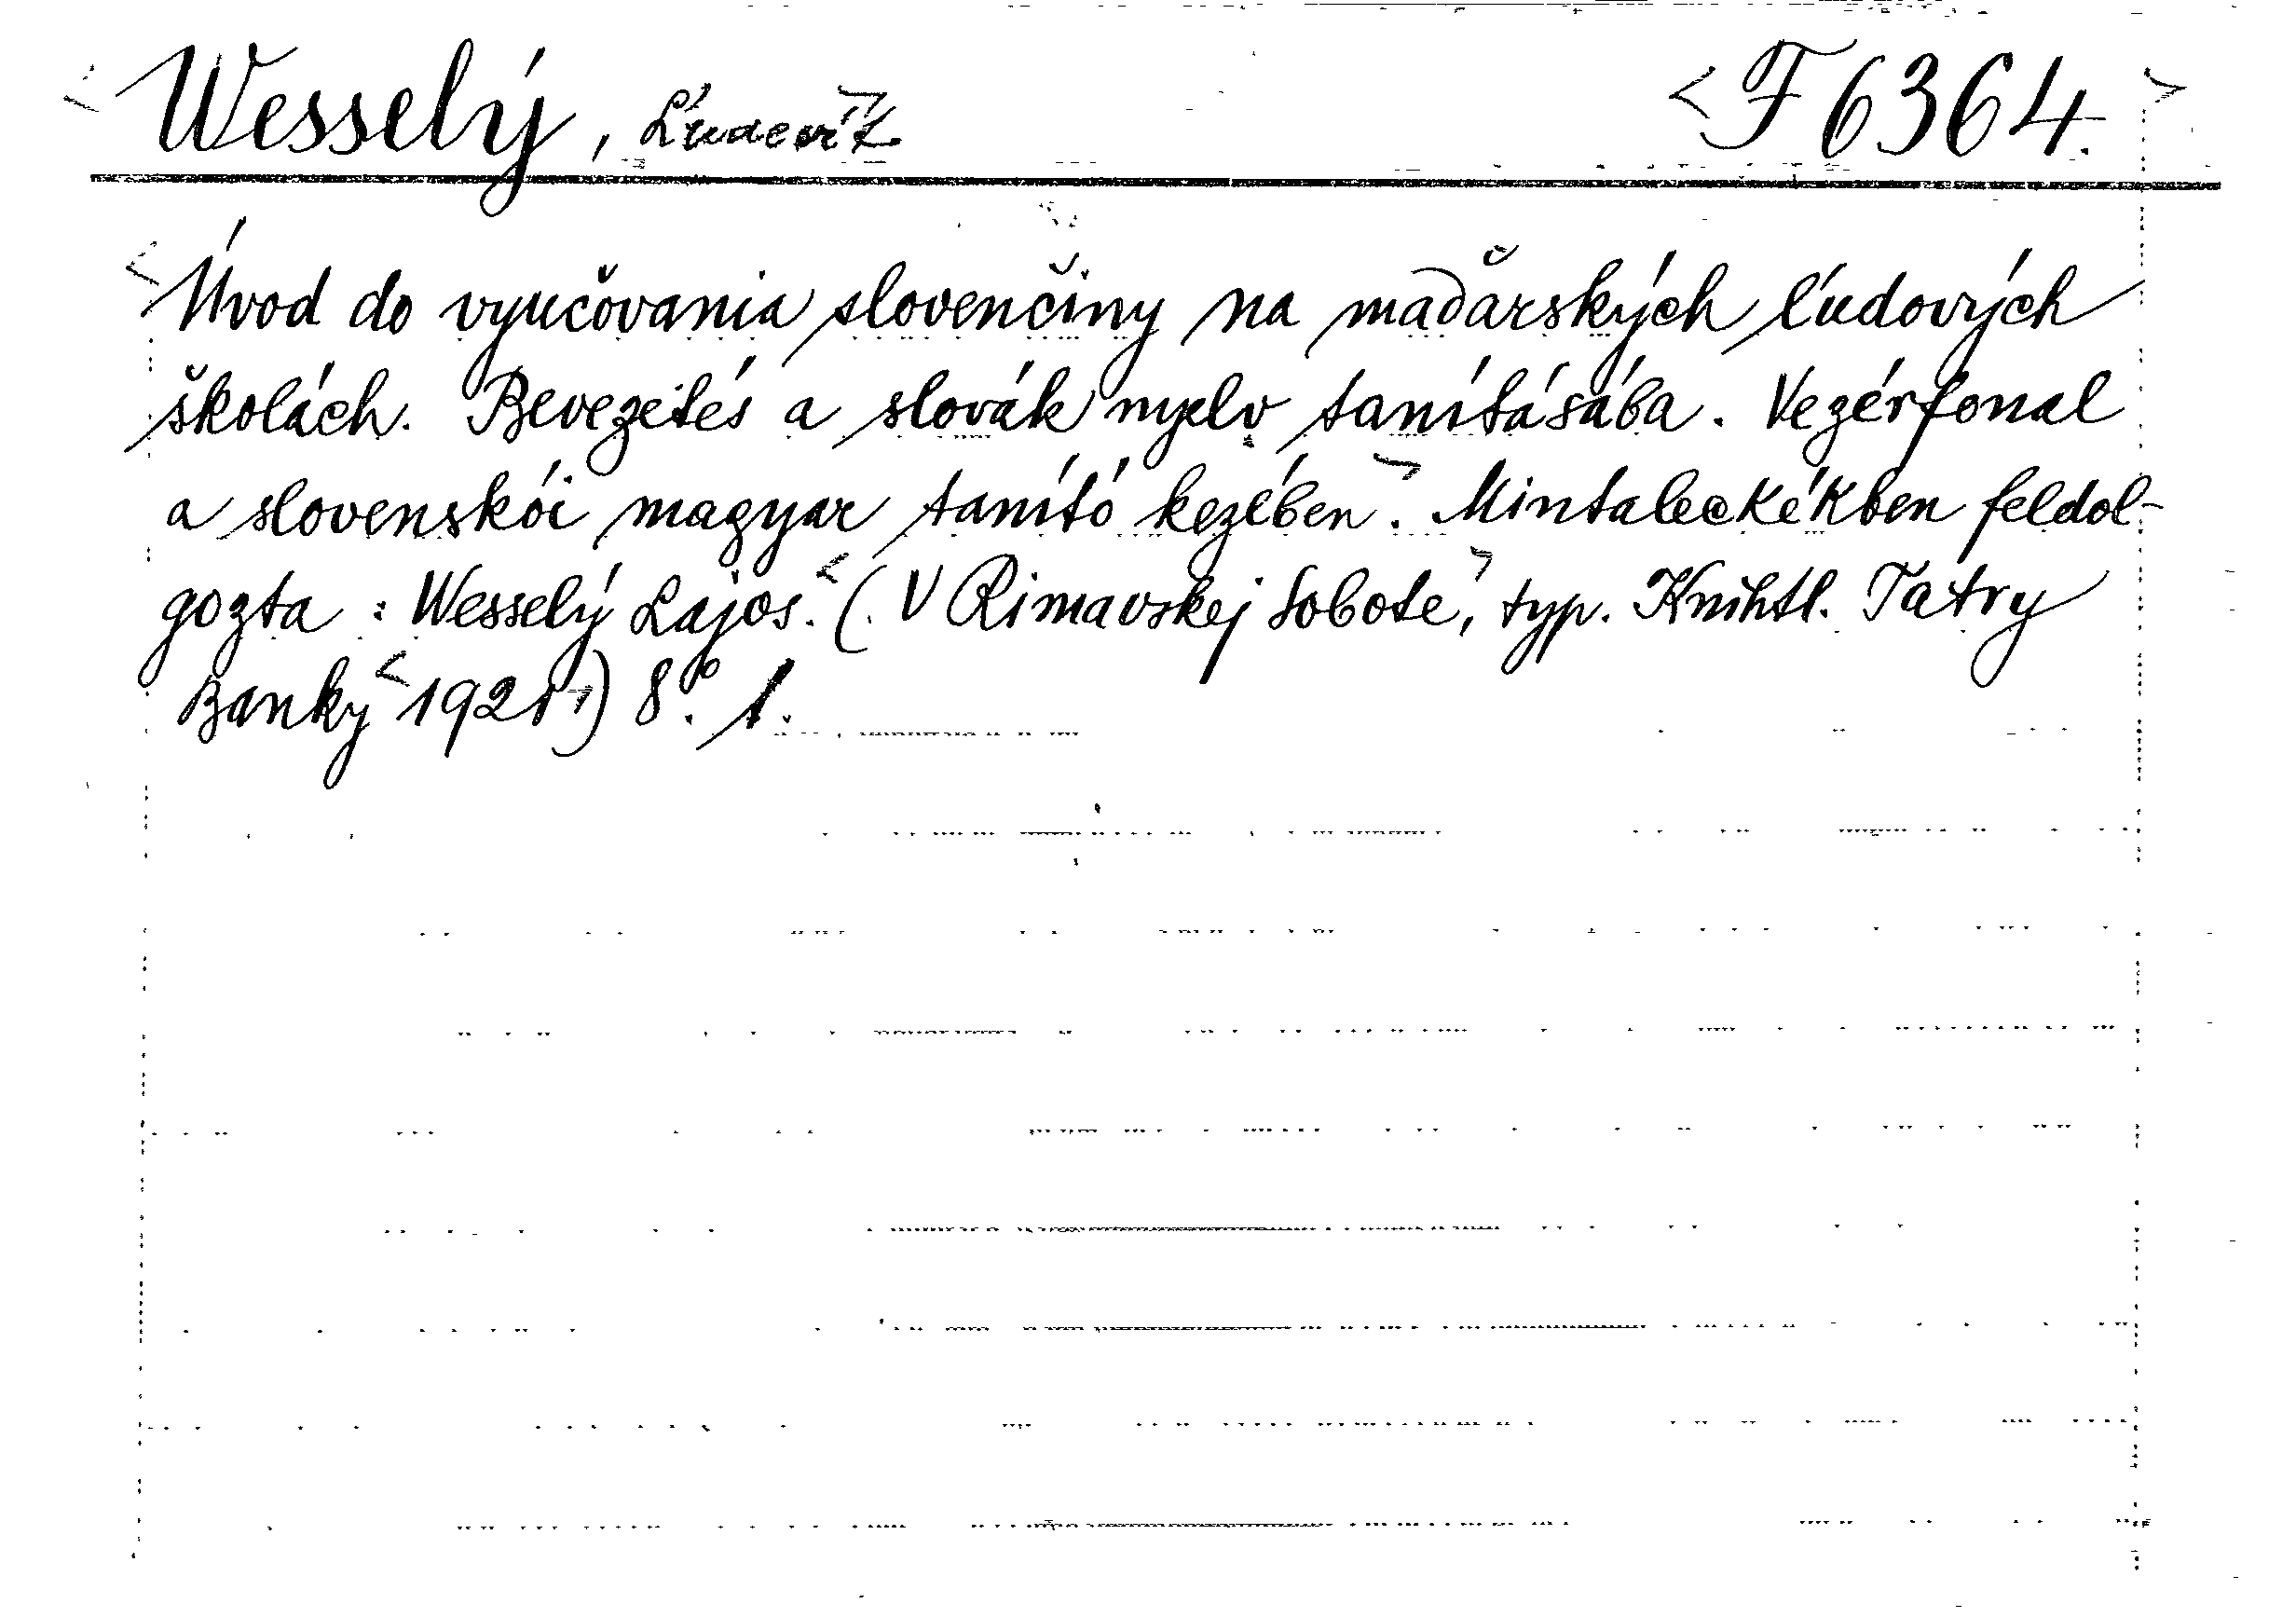 <Wesselý, Ľudevít> <F 6364.>
<Úvod do vyučovania slovenčiny na maďarských ľudových
školách. Bevezetés a slovák nyelv tanításába. Vezérfonal
a slovenskói magyar tanító kezében.> Mintaleckékben feldol-
gozta : Wesselý Lajos. <(V Rimavskej Sobote>, typ. Kníhtl. Tatry
Banky <1921>) 8°. 1.